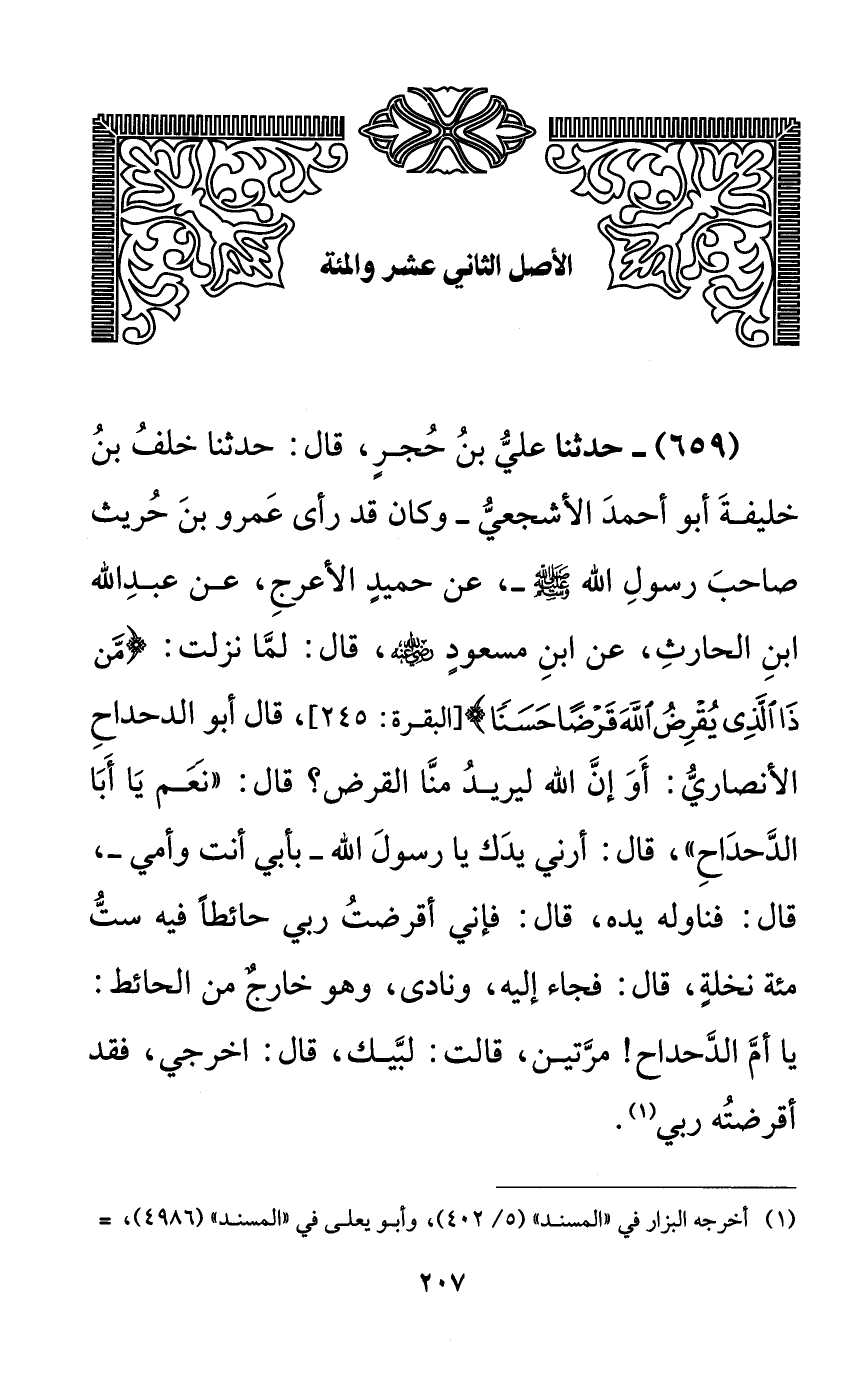 الأصل الثاني عشر والمئة
(٦٥٩) ـ حدثنا عليُّ بنُ حُجرٍ، قال: حدثنا خلفُ بنُ
خليفةَ أبو أحمدَ الأشجعيُّ ـ وكان قد رأى عَمرو بنَ حُريث
صاحبَ رسولِ الله ﷺ ـ، عن حميدٍ الأعرجِ، عن عبدِالله
ابنِ الحارثِ، عن ابنِ مسعودٍ رضي الله عنه، قال: لمَّا نزلت: ﴿مَّن
ذَا ٱلَّذِى يُقۡرِضُ ٱللَّهَ قَرۡضًا حَسَنًا﴾ [البقرة: ٢٤٥]، قال أبو الدحداحِ
الأنصاريُّ: أَوَ إنَّ الله ليريدُ منَّا القرض؟ قال: «نَعَم يَا أَبَا
الدَّحدَاحِ»، قال: أرني يدَك يا رسولَ الله ـ بأبي أنت وأمي ـ،
قال: فناوله يده، قال: فإني أقرضتُ ربي حائطاً فيه ستُّ
مئة نخلةٍ، قال: فجاء إليه، ونادى، وهو خارجٌ من الحائط:
يا أمَّ الدَّحداح! مرَّتين، قالت: لبَّيك، قال: اخرجي، فقد
أقرضتُه ربي(١).
(١) أخرجه البزار في «المسند» (٥/ ٤٠٢)، وأبو يعلى في «المسند» (٤٩٨٦)، =
٢٠٧